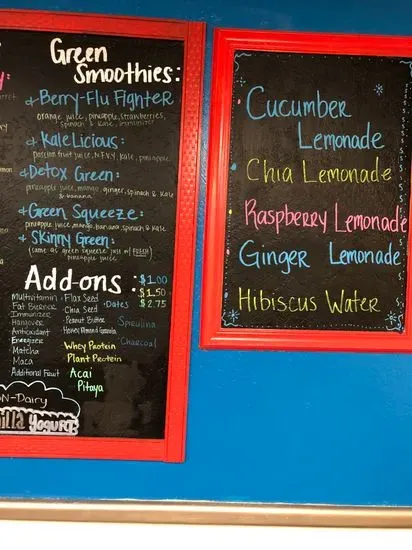 Green
Smoothies:
+Berry-Flu Fighter
orange juice, pineapple, strawberries,
spinach & kale, immunizer
+KaleLicious:
passion fruit juice, N.F.V.Y, kale, pineapple
+Detox Green:
pineapple juice, mango, ginger, spinach & kale
& banana
+Green Squeeze:
pineapple juice, mango, banana, spinach & kale
+SKinny Green:
(same as green squeeze just w/ FRESH
pineapple juice)
Add-ons:
$1.00
$1.50
$2.75
Multivitamin
Fat Burner
Immunizer
Hangover
Antioxidant
Energizer
Matcha
Maca
Additional Fruit
Flax Seed
Chia Seed
Peanut Butter
Honey Almond Granola
Whey Protein
Plant Protein
Acai
Pitaya
Dates
Spirulina
Charcoal
N-Dairy
illa Yogurt
Cucumber
Lemonade
Chia Lemonade
Raspberry Lemonade
Ginger Lemonade
Hibiscus Water